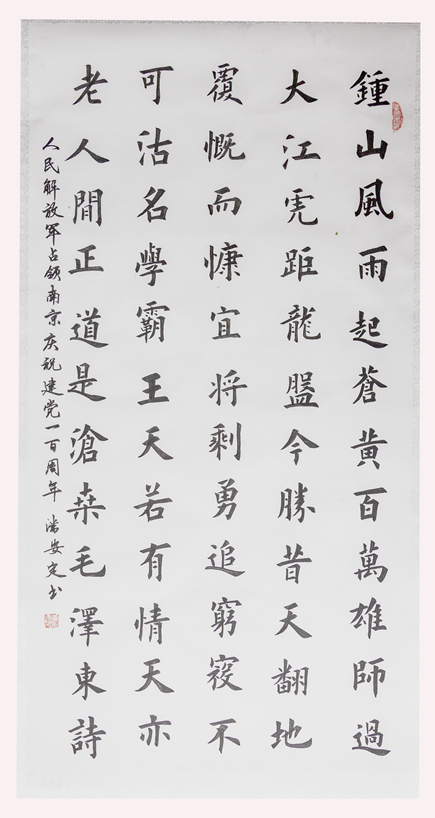 鍾山風雨起蒼黄百萬雄師過
大江虎距龍盤今勝昔天翻地
覆慨而慷宜将剩勇追窮寇不
可沽名學霸王天若有情天亦
老人間正道是滄桑毛澤東詩
人民解放军占领南京庆祝建党一百周年 潘安定书